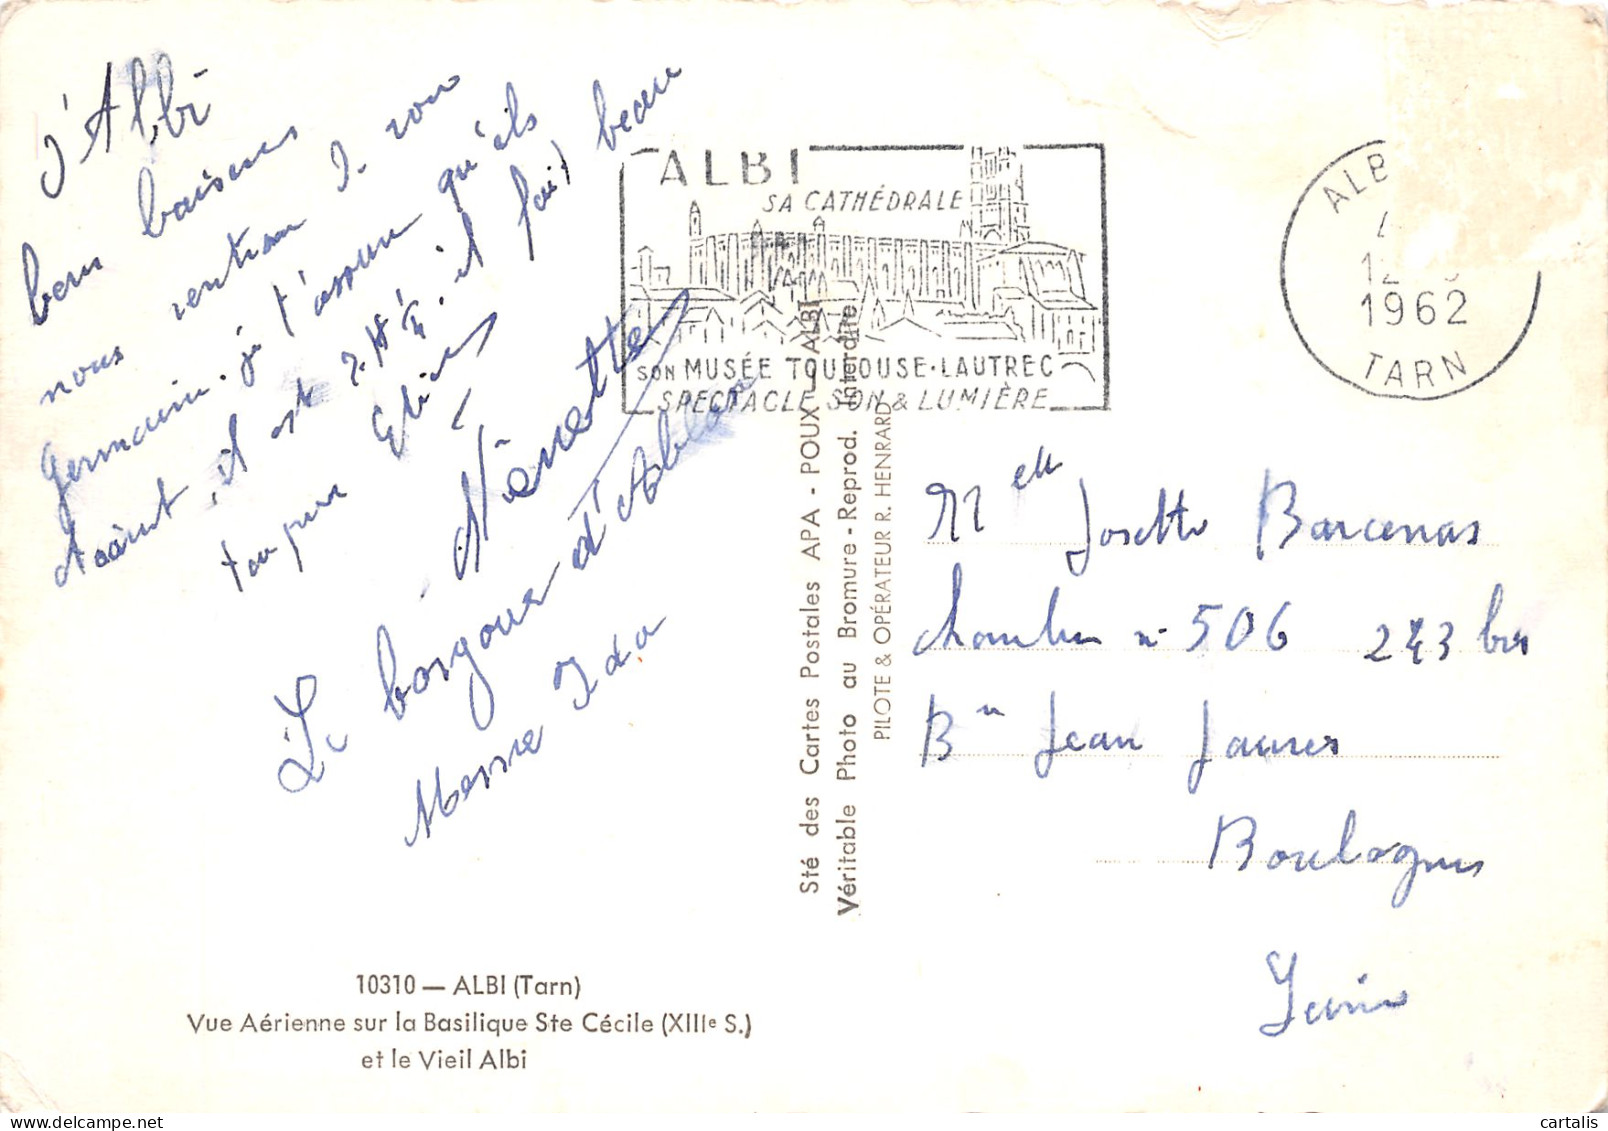 d'Albi
bons baisers
nous rentrons
Germaine. je t'assure qu'ils
il est 2 H ¼. il fait beau
Nénette
Le bonjour d'Ablon
Ida
ALBI
SA CATHÉDRALE
SON MUSÉE TOULOUSE-LAUTREC
SPECTACLE SON & LUMIÈRE
ALB
1962
TARN
Sté des Cartes Postales APA - POUX - ALBI
Véritable Photo au Bromure - Reprod. Interdite
PILOTE & OPÉRATEUR R. HENRARD
Melle Josette Barcenas
chambre n° 506 243 bis
Bd Jean Jaures
Boulogne
Seine
10310 — ALBI (Tarn)
Vue Aérienne sur la Basilique Ste Cécile (XIIIe S.)
et le Vieil Albi
cartalis